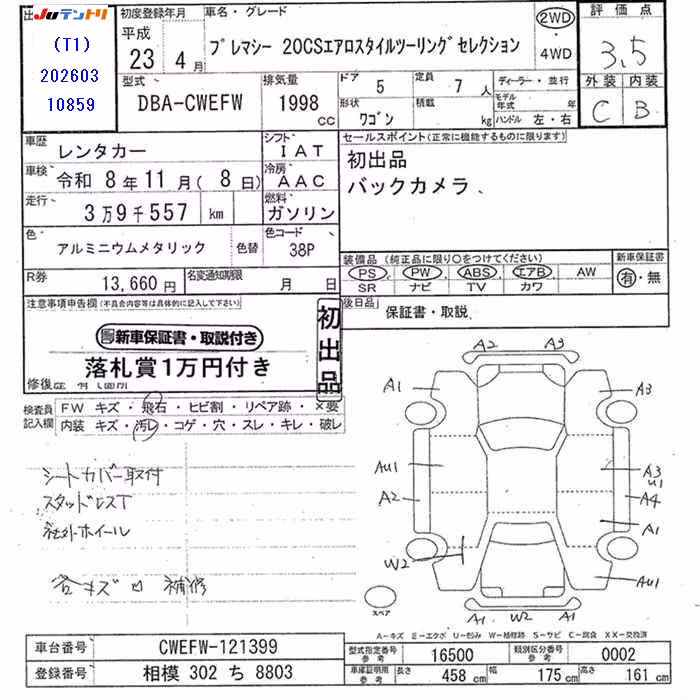 出 Juテントリ
(T1)
202603
10859
初度登録年月
平成
23 4 月
車名・グレード
プレマシー 20CSエアロスタイルツーリングセレクション
2WD
・
4WD
評価点
3.5
型式
DBA-CWEFW
排気量
1998 cc
ドア 5
定員 7 人
形状 ワゴン
積載 kg
ディーラー・並行
モデル年式 年
ハンドル 左・右
外装 内装
C B
車歴
レンタカー
シフト
IAT
車検
令和 8年11月( 8日)
冷房
AAC
走行
3万9千557 km
燃料
ガソリン
色
アルミニウムメタリック
色替
色コード
38P
セールスポイント(正常に機能するものに限ります)
初出品
バックカメラ
R券
13,660円
名変通知期限
月 日
装備品 (純正品に限り○をつけてください)
PS PW ABS エアB AW
SR ナビ TV カワ
新車保証書
有・無
注意事項申告欄(不具合内容等は具体的に記入して下さい)
新車保証書・取説付き
落札賞1万円付き
初出品
後日品
保証書・取説
検査員記入欄
FW キズ・飛石・ヒビ割・リペア跡・×要
内装 キズ・汚レ・コゲ・穴・スレ・キレ・破レ
シートカバー取付
スタッドレスT
社外ホイール
各キズ凹 補修
A2 A3
A1 A3
AU1 A3
U1
A2 A4
A1
W2
AU1
A1 W2 A1
スペア
A-キズ E-エクボ U-凹み W-補修跡 S-サビ C-腐食 XX-交換済
車台番号
CWEFW-121399
型式指定番号
参考
16500
類別区分番号
参考
0002
登録番号
相模 302 ち 8803
車庫証明用
参考
長さ 458 cm
幅 175 cm
高さ 161 cm